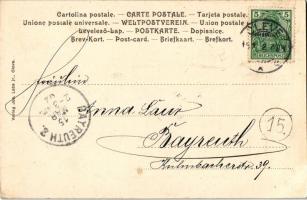 Cartolina postale. — CARTE POSTALE. — Tarjeta postale.
Unione postale universale. — WELTPOSTVEREIN. — Union postale universelle.
Levelező-Lap. — POSTKARTE. — Dopisnice.
Brev-Kort. — Post-card. — Briefkaart. — Brefkort.
5
5
Fräulein
Anna Laur
Bayreuth
Kulmbacherstr. 39.
15.
BAYREUTH 2